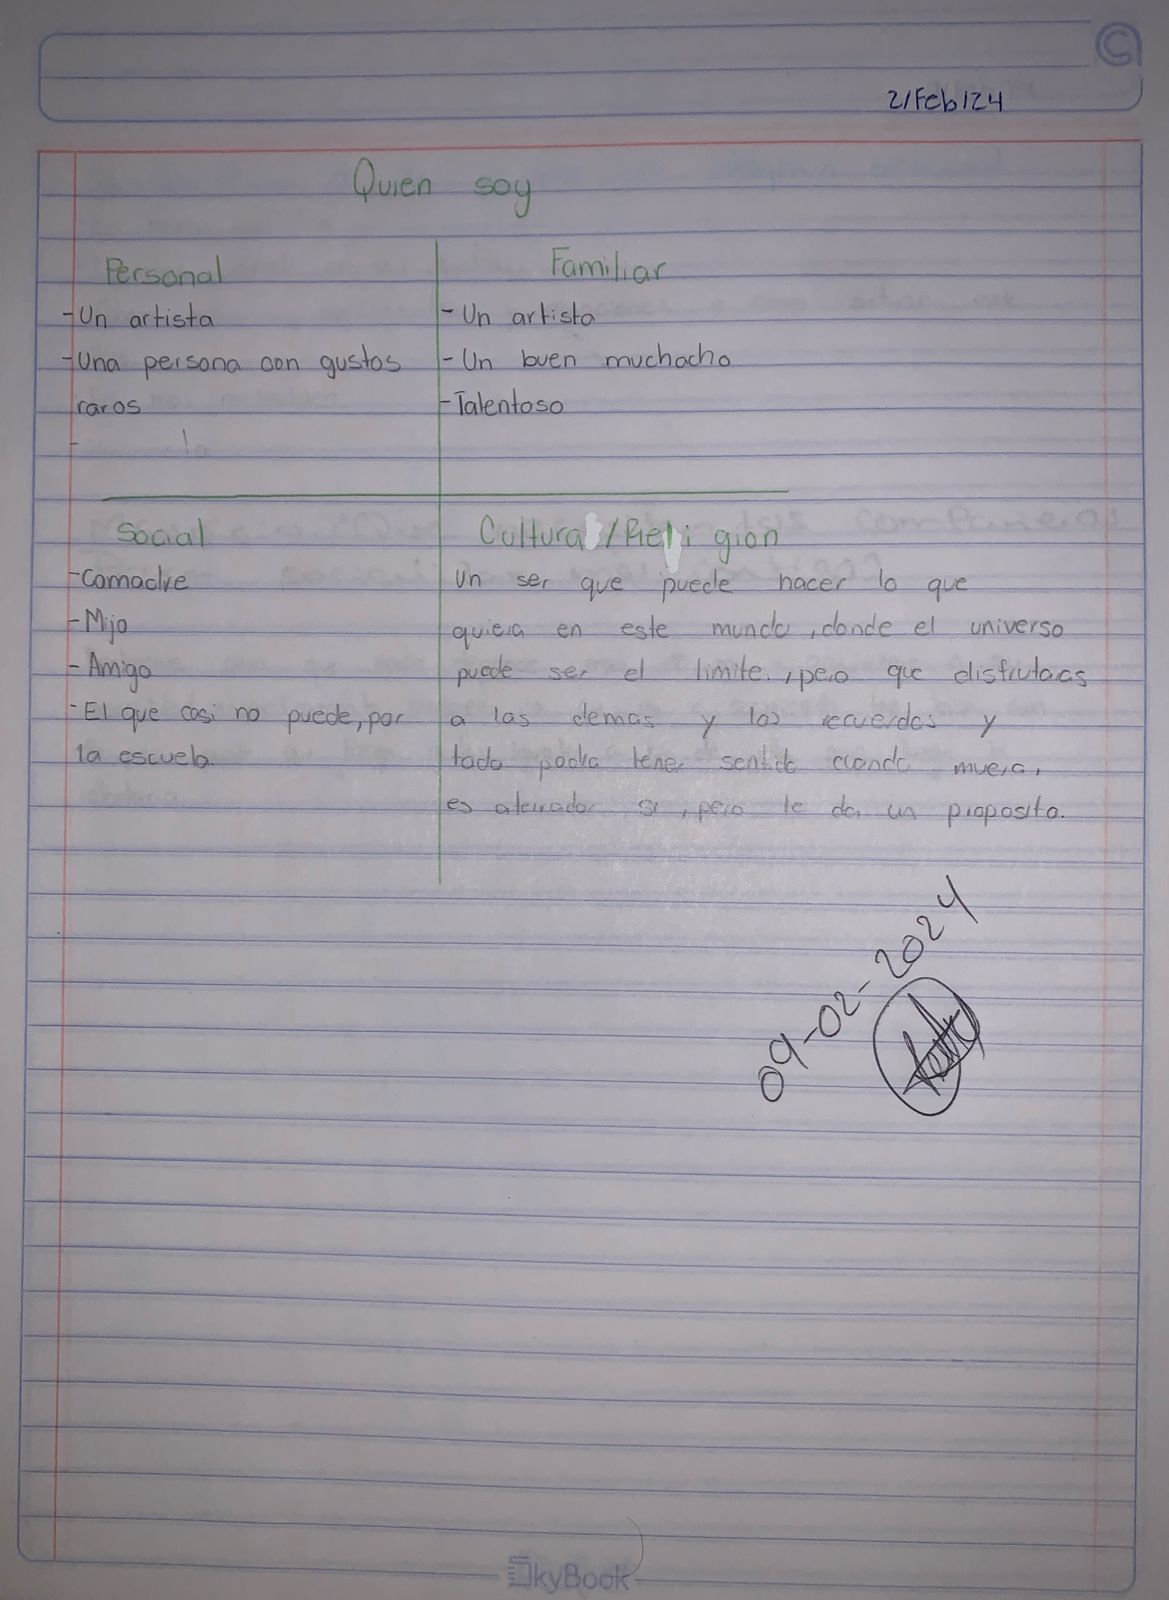 2/Feb/24
Quien soy
Personal
-Un artista
-Una persona con gustos
raros
-
Familiar
-Un artista
-Un buen muchacho
-Talentoso
Social
-Comadre
-Mijo
-Amigo
-El que casi no puede, por
la escuela.
Cultural/Religion
Un ser que puede hacer lo que
quiera en este mundo, donde el universo
puede ser el limite, pero que disfrutaas
a las demas y los recuerdos y
todo podra tener sentido cuando muera,
es aterrador si, pero te da un proposito.
09-02-2024
SkyBook